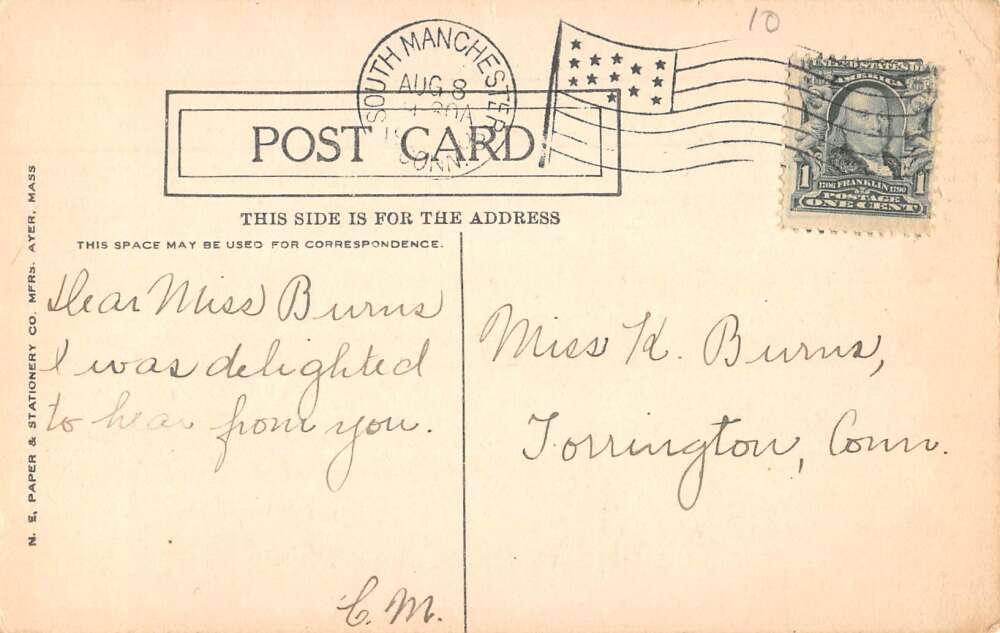 10
SOUTH MANCHESTER
AUG 8
CONN.
UNITED STATES OF
AMERICA
1 1706 FRANKLIN 1790 1
POSTAGE
ONE CENT
POST CARD
THIS SIDE IS FOR THE ADDRESS
THIS SPACE MAY BE USED FOR CORRESPONDENCE.
N. E. PAPER & STATIONERY CO. MFRS. AYER, MASS
Dear Miss Burns
I was delighted
to hear from you.
C.M.
Miss K. Burns,
Torrington, Conn.